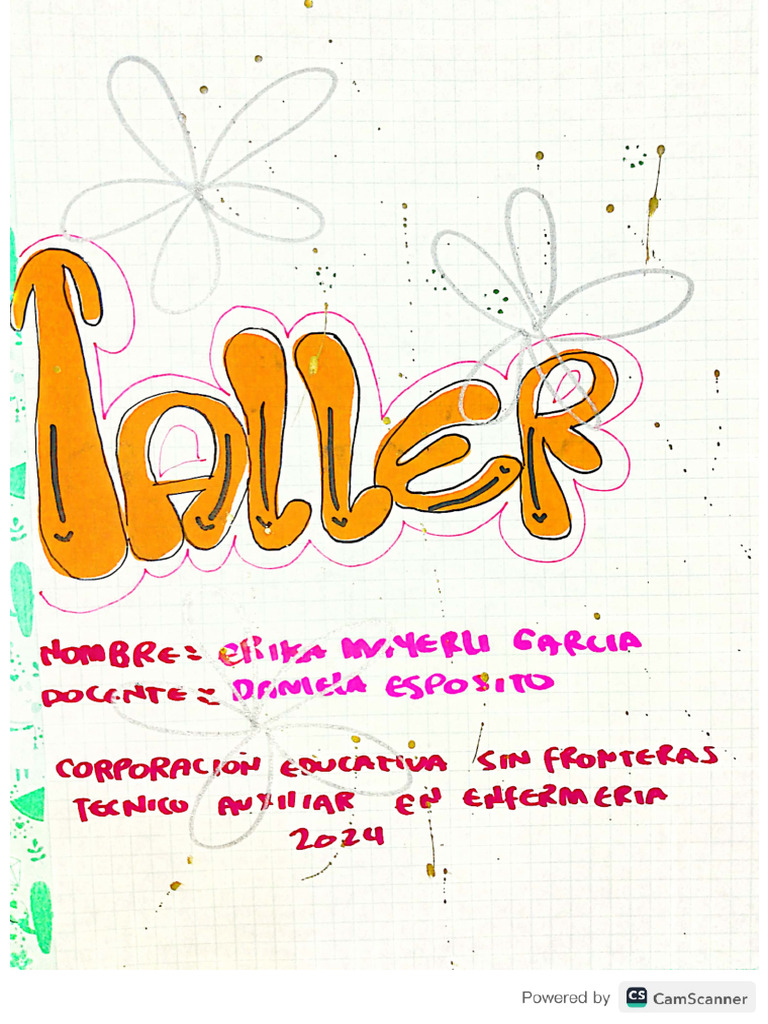 Taller
NOMBRE: ERIKA MAYERLI GARCIA
DOCENTE: DANIELA ESPOSITO
CORPORACION EDUCATIVA SIN FRONTERAS
TECNICO AUXILIAR EN ENFERMERIA
2024
Powered by CS CamScanner